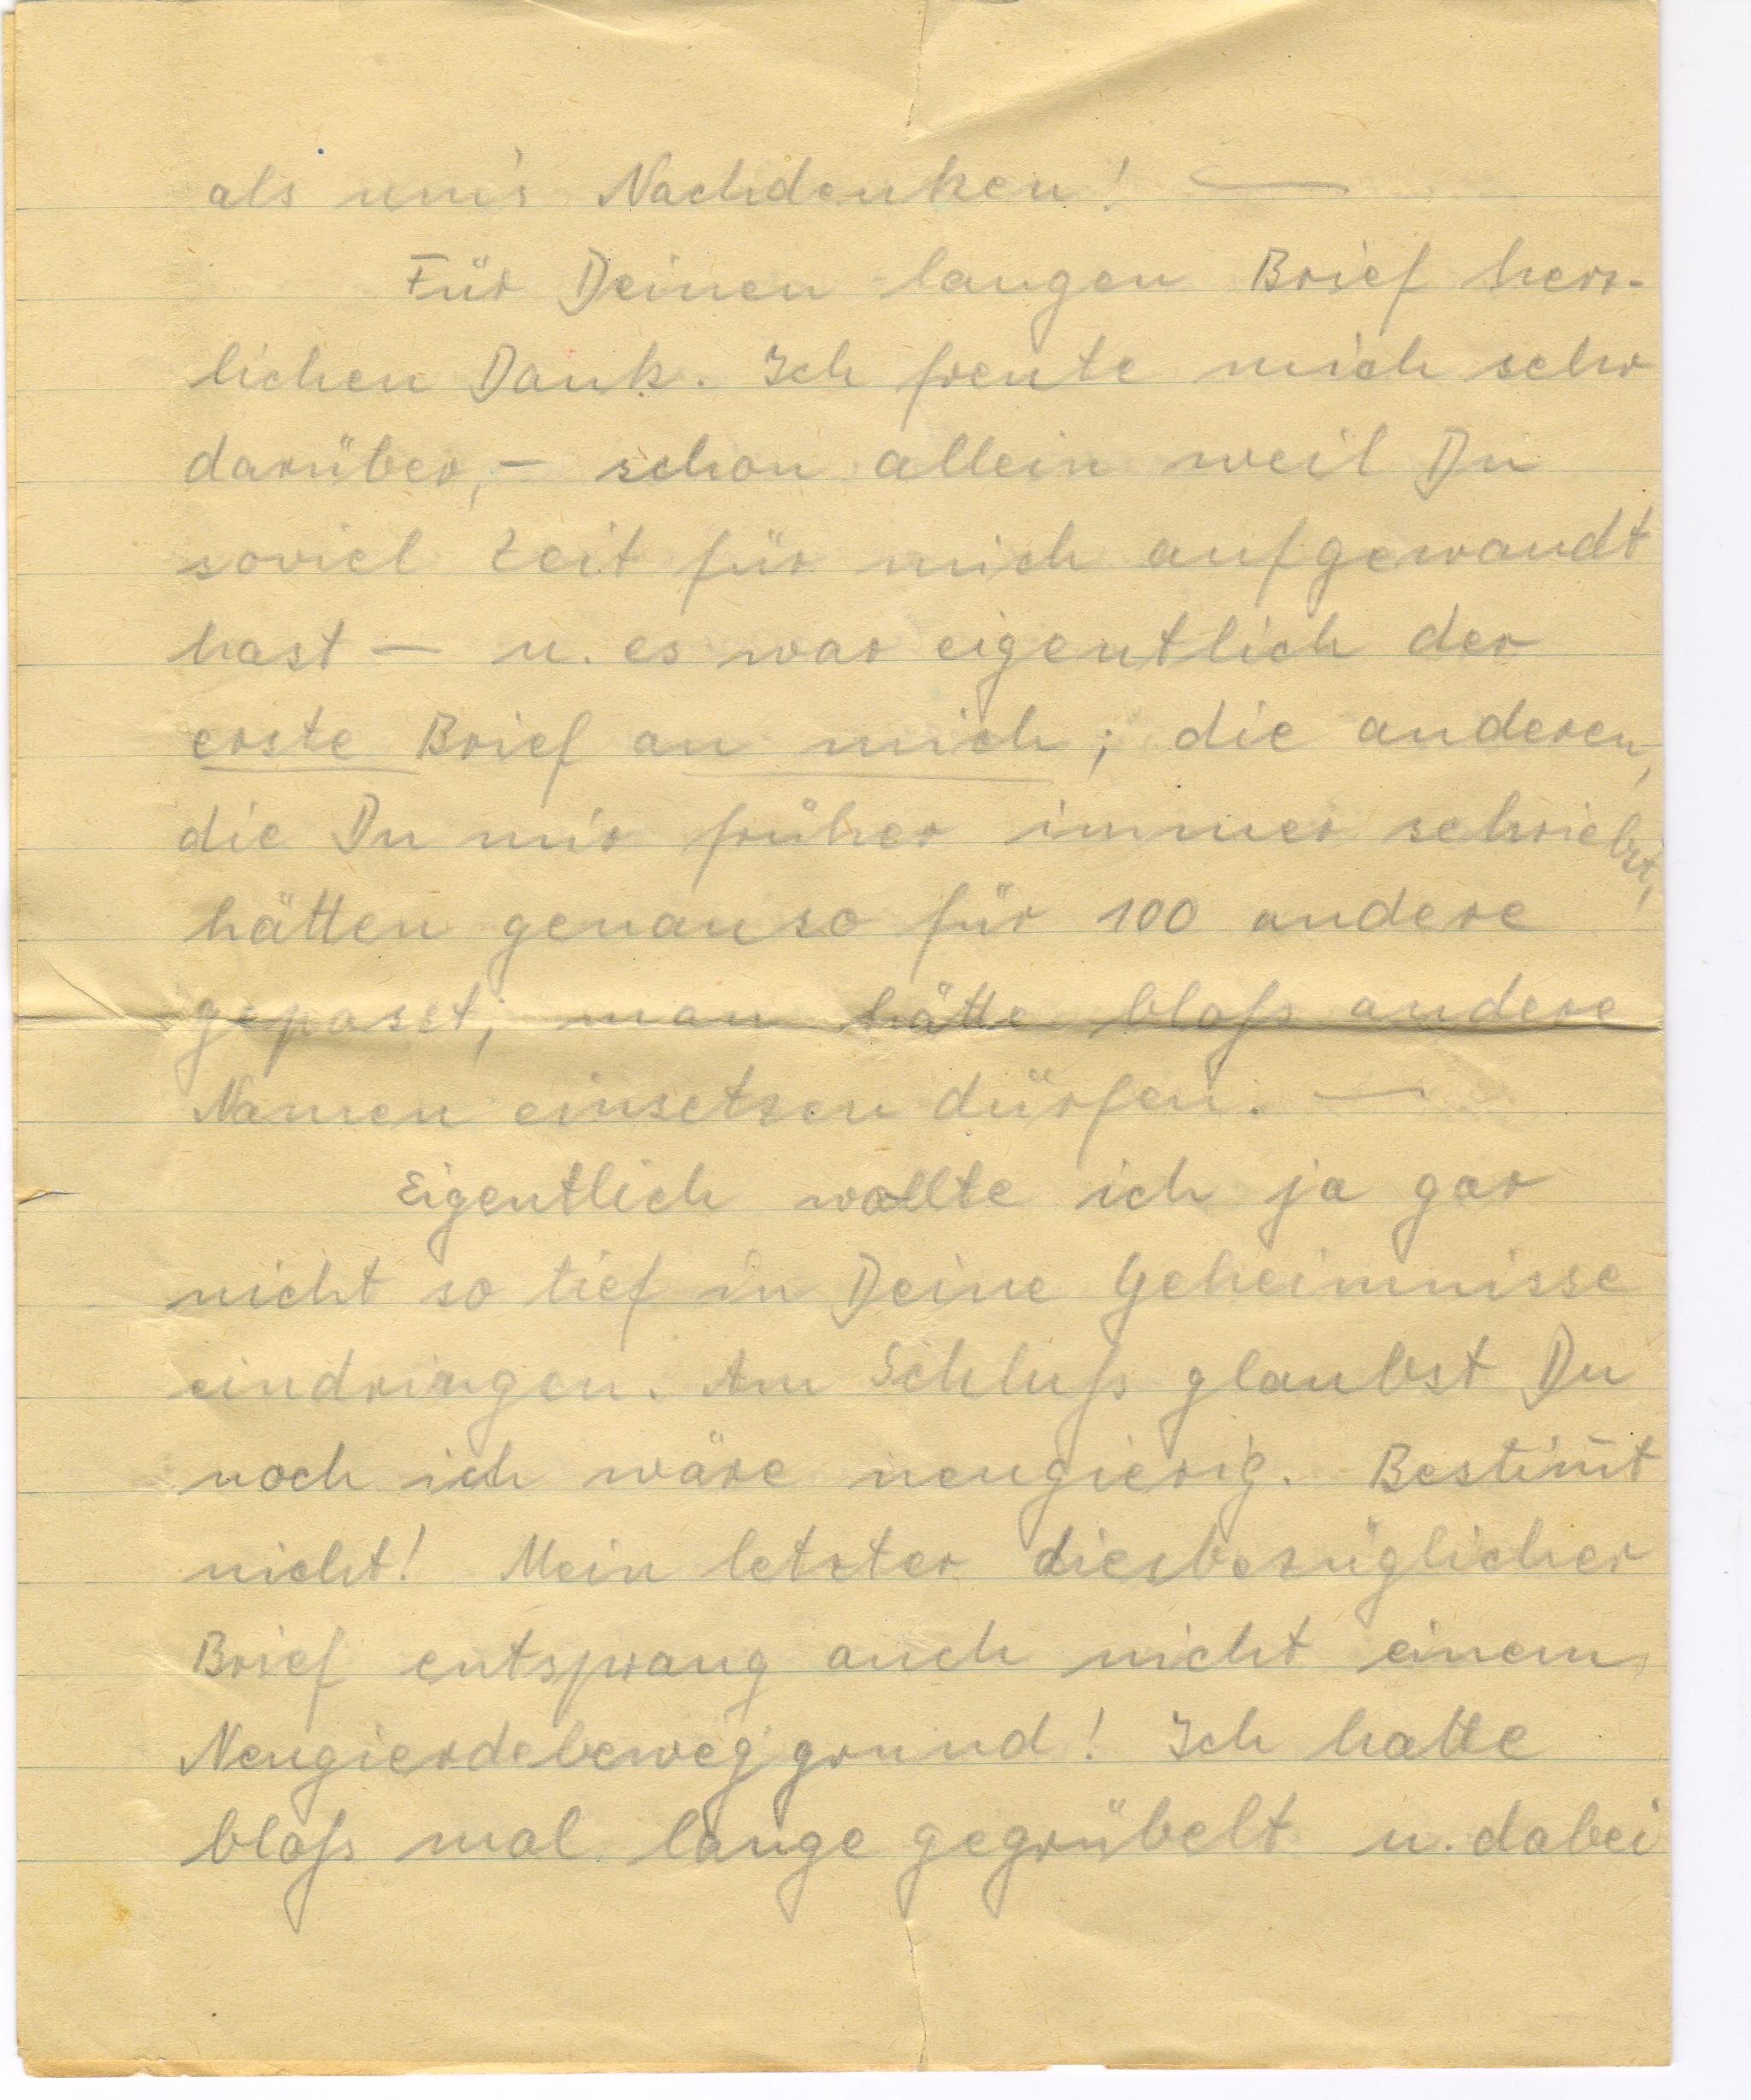 als um's Nachdenken! —
Für Deinen langen Brief herz-
lichen Dank. Ich freute mich sehr
darüber, – schon allein weil Du
soviel Zeit für mich aufgewandt
hast — u. es war eigentlich der
erste Brief an mich; die anderen,
die Du mir früher immer schriebst,
hätten genauso für 100 andere
gepasst; man hätte bloß andere
Namen einsetzen dürfen. —
Eigentlich wollte ich ja gar
nicht so tief in Deine Geheimnisse
eindringen. Am Schluß glaubst Du
noch ich wäre neugierig. Bestim̄t
nicht! Mein letzter diesbezüglicher
Brief entsprang auch nicht einem
Neugierdebeweggrund! Ich hatte
bloß mal lange gegrübelt u. dabei